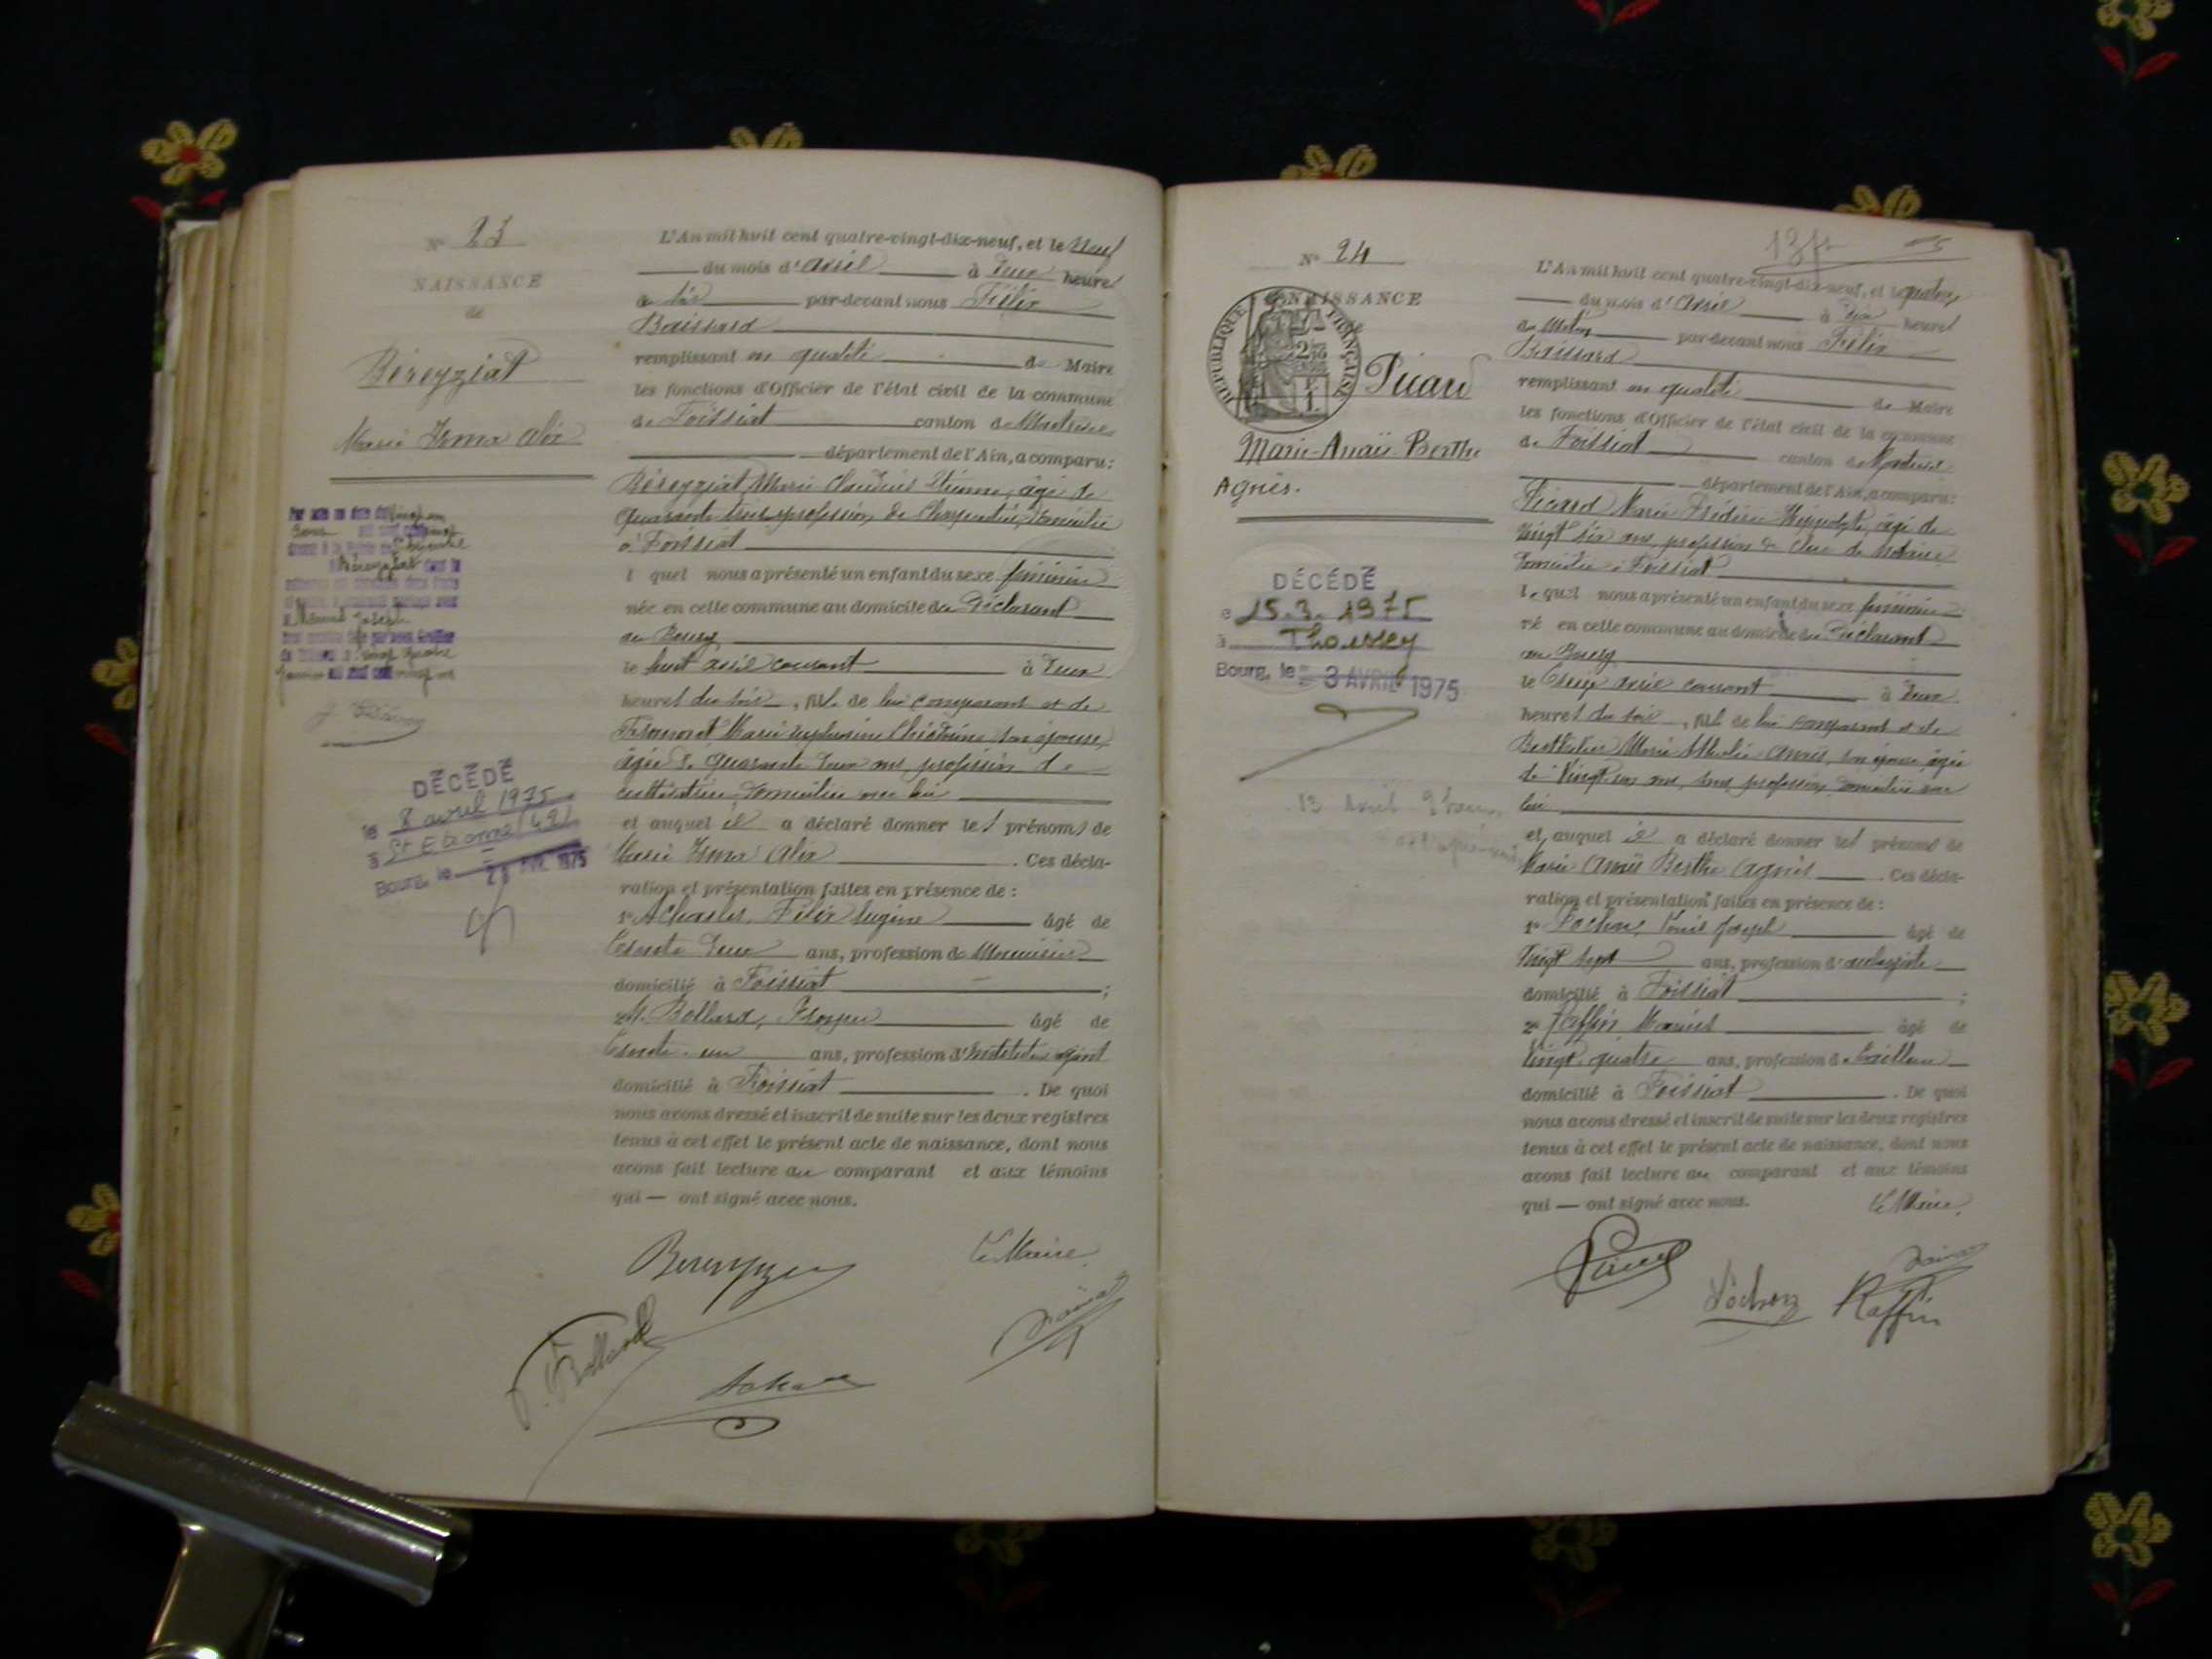 N° 23
NAISSANCE
de
Béreyziat
Marie Irma Alix
DÉCÉDÉ
le 8 avril 1975
à St Etienne (42)
Bourg, le 28 AVR. 1975
L'An mil huit cent quatre-vingt-dix-neuf, et le Neuf
du mois d'Avril à deux heures
du soir par-devant nous Félix
Boissard
remplissant en qualité de Maire
les fonctions d'Officier de l'état civil de la commune
de Foissiat canton de Montrevel
département de l'Ain, a comparu:
Béreyziat, Marie Claudius Etienne, âgé de
quarante trois profession de Charpentier, domicilié
à Foissiat
lequel nous a présenté un enfant du sexe féminin
née en cette commune au domicile du Déclarant
au Bourg
le huit avril courant à deux
heures du soir, fil. de lui comparant et de
Marie son épouse,
âgée de quarante deux ans profession de
cultivatrice domiciliée avec lui
et auquel il a déclaré donner les prénoms de
Marie Irma Alix. Ces décla-
ration et présentation faites en présence de:
1° Félix Eugène âgé de
trente deux ans, profession de Menuisier
domicilié à Foissiat;
2° Bollard, Prosper âgé de
trente un ans, profession d'Instituteur adjoint
domicilié à Foissiat. De quoi
nous avons dressé et inscrit de suite sur les deux registres
tenus à cet effet le présent acte de naissance, dont nous
avons fait lecture au comparant et aux témoins
qui — ont signé avec nous.
Le Maire
P. Bollard
N° 24
NAISSANCE
RÉPUBLIQUE FRANÇAISE
Picard
Marie-Anaïs-Berthe
Agnès.
DÉCÉDÉ
le 15.3.1975
à Thoissey
Bourg, le 3 AVRIL 1975
L'An mil huit cent quatre-vingt-dix-neuf, et le quatorze
du mois d'Avril à dix heures
du Matin par-devant nous Félix
Boissard
remplissant en qualité de Maire
les fonctions d'Officier de l'état civil de la commune
de Foissiat canton de Montrevel
département de l'Ain, a comparu:
Picard Marie Frédéric Hippolyte, âgé de
vingt six ans, profession de Clerc de Notaire
domicilié à Foissiat
lequel nous a présenté un enfant du sexe féminin
né en cette commune au domicile du Déclarant
au Bourg
le treize avril courant à deux
heures du soir, fil. de lui comparant et de
Berthelier Marie Anaïs, son épouse, âgée
de Vingt un ans, sans profession, domiciliée avec
lui
et auquel il a déclaré donner les prénoms de
Marie Anaïs Berthe Agnès. Ces décla-
ration et présentation faites en présence de:
1° Pochon, Louis Joseph âgé de
Vingt sept ans, profession d'aubergiste
domicilié à Foissiat;
2° Raffin Marius âgé de
Vingt quatre ans, profession de
domicilié à Foissiat. De quoi
nous avons dressé et inscrit de suite sur les deux registres
tenus à cet effet le présent acte de naissance, dont nous
avons fait lecture au comparant et aux témoins
qui — ont signé avec nous.
Le Maire,
Pochon
Raffin